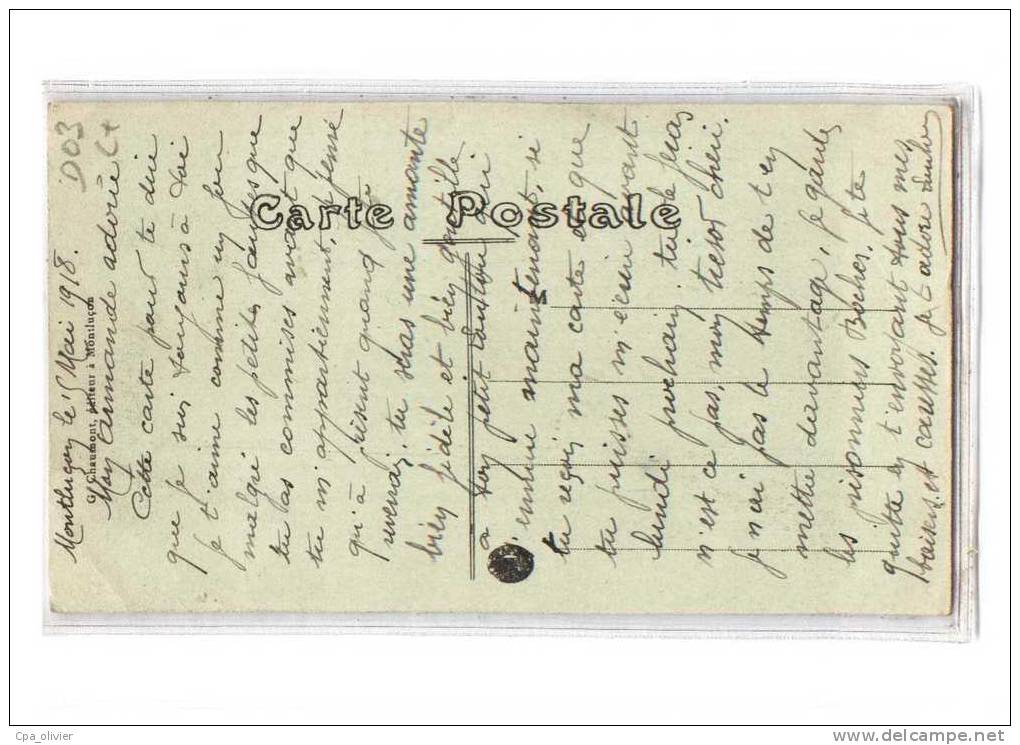 D03
Ct
Montluçon le 5 Mai 1918.
G. Chaumont, éditeur à Montluçon
Mon Armande adorée
Cette carte pour te dire
que je suis toujours à toi
je t'aime comme un fou
malgré les petites fautes que
tu as commises avant que
tu m'appartiennent, je pensé
qu'à présent quand je te
reverrai, tu seras une amante
bien fidèle et bien gentille
à ton petit Loulou qui
t'emme maintenant, si
tu reçois ma carte et que
tu puisses m'écrire avant
lundi prochain, tu le feras
n'est ce pas, mon tresor cheri.
je n'ai pas le temps de t'en
mettre davantage, je garde
les prisonniers Boches, je te
quitte en t'envoyant tous mes
baisers et caresses. Je t'adore
Carte Postale
M
Cpa_olivier
www.delcampe.net